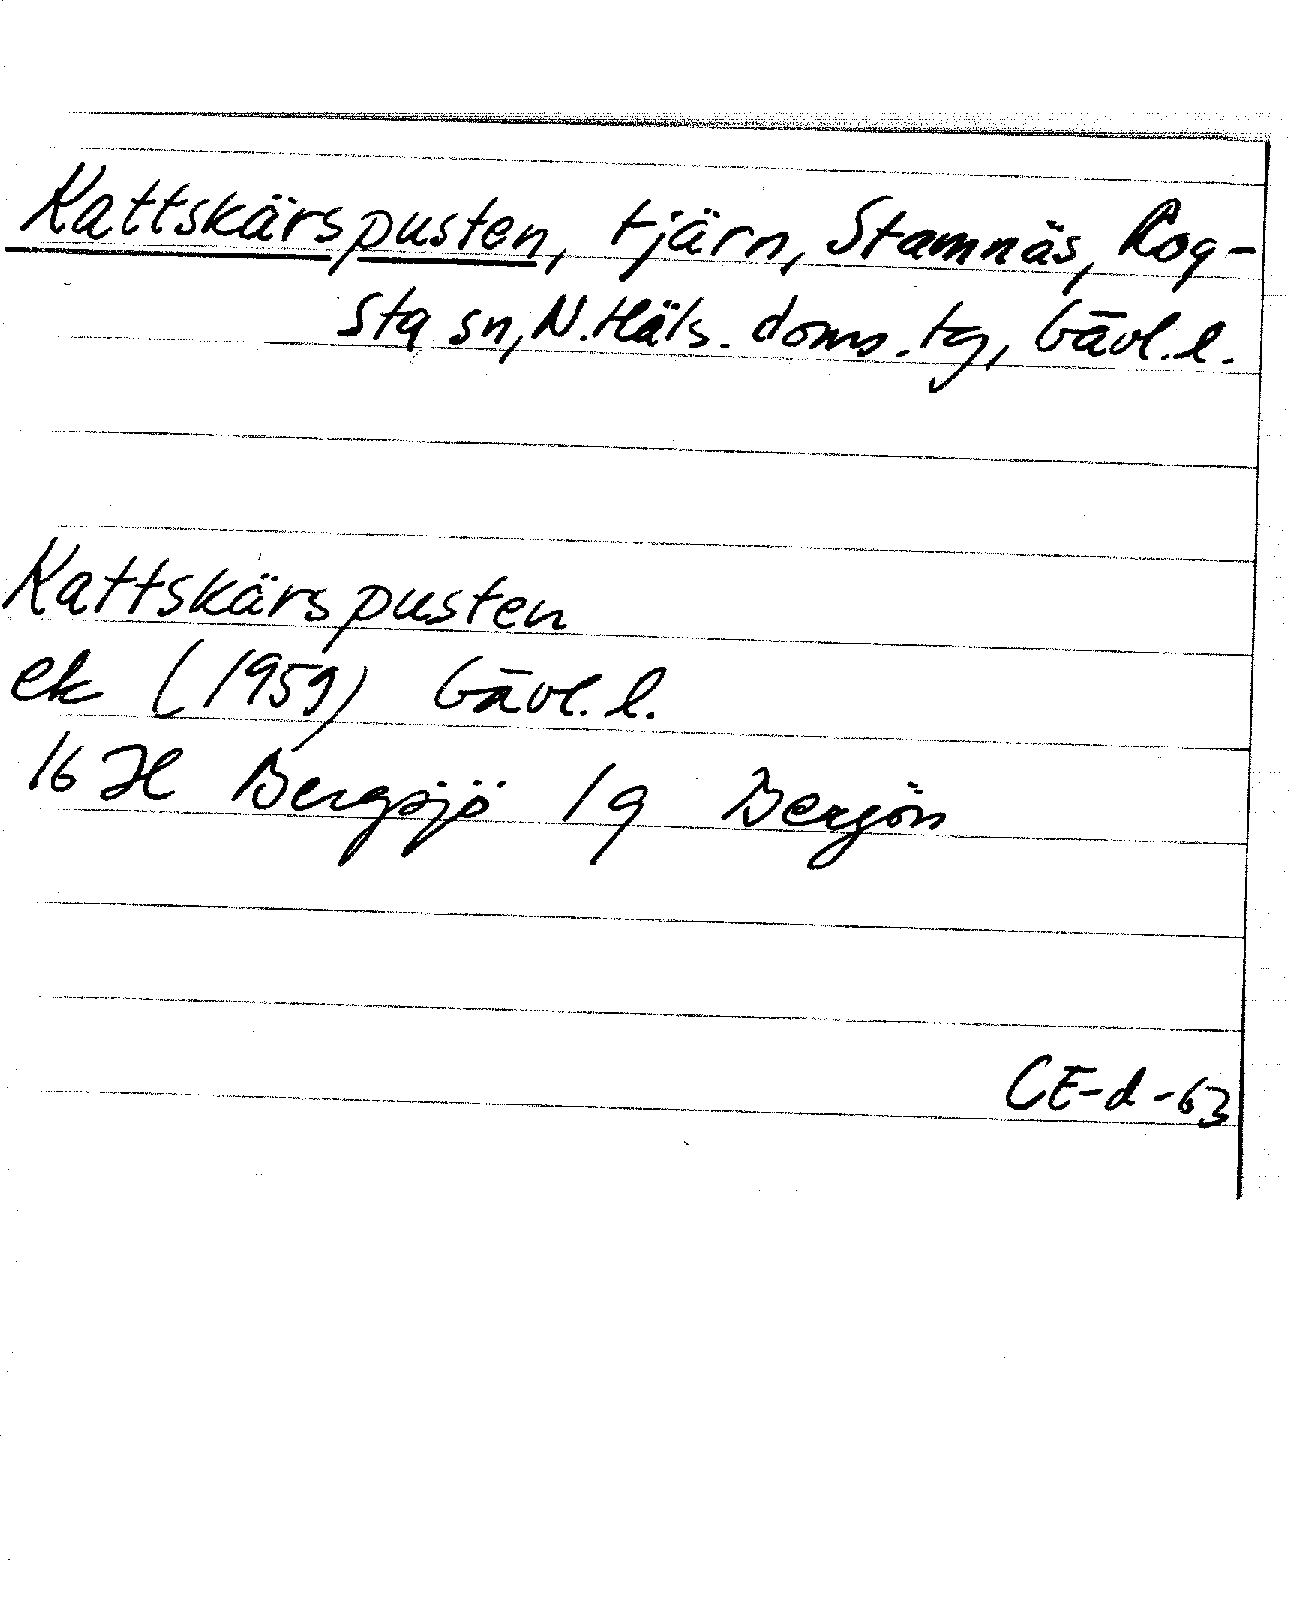 Kattskärspusten, tjärn, Stamnäs, Rog-
sta sn, N. Häls. doms. tg, Gävl. l.
Kattskärspusten
ek (1959) Gävl. l.
16 H Bergsjö 1g Bergön
CE-d-63